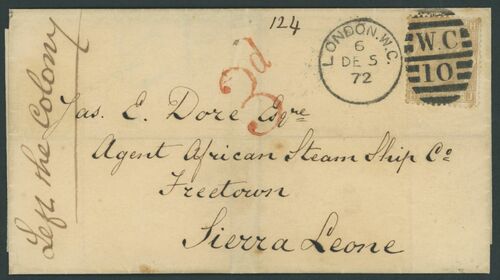 124
3d
LONDON.W.C.
6
DE 5
72
W.C
10
Jas. E. Dore Esqre
Agent African Steam Ship Co
Freetown
Sierra Leone
Left the Colony